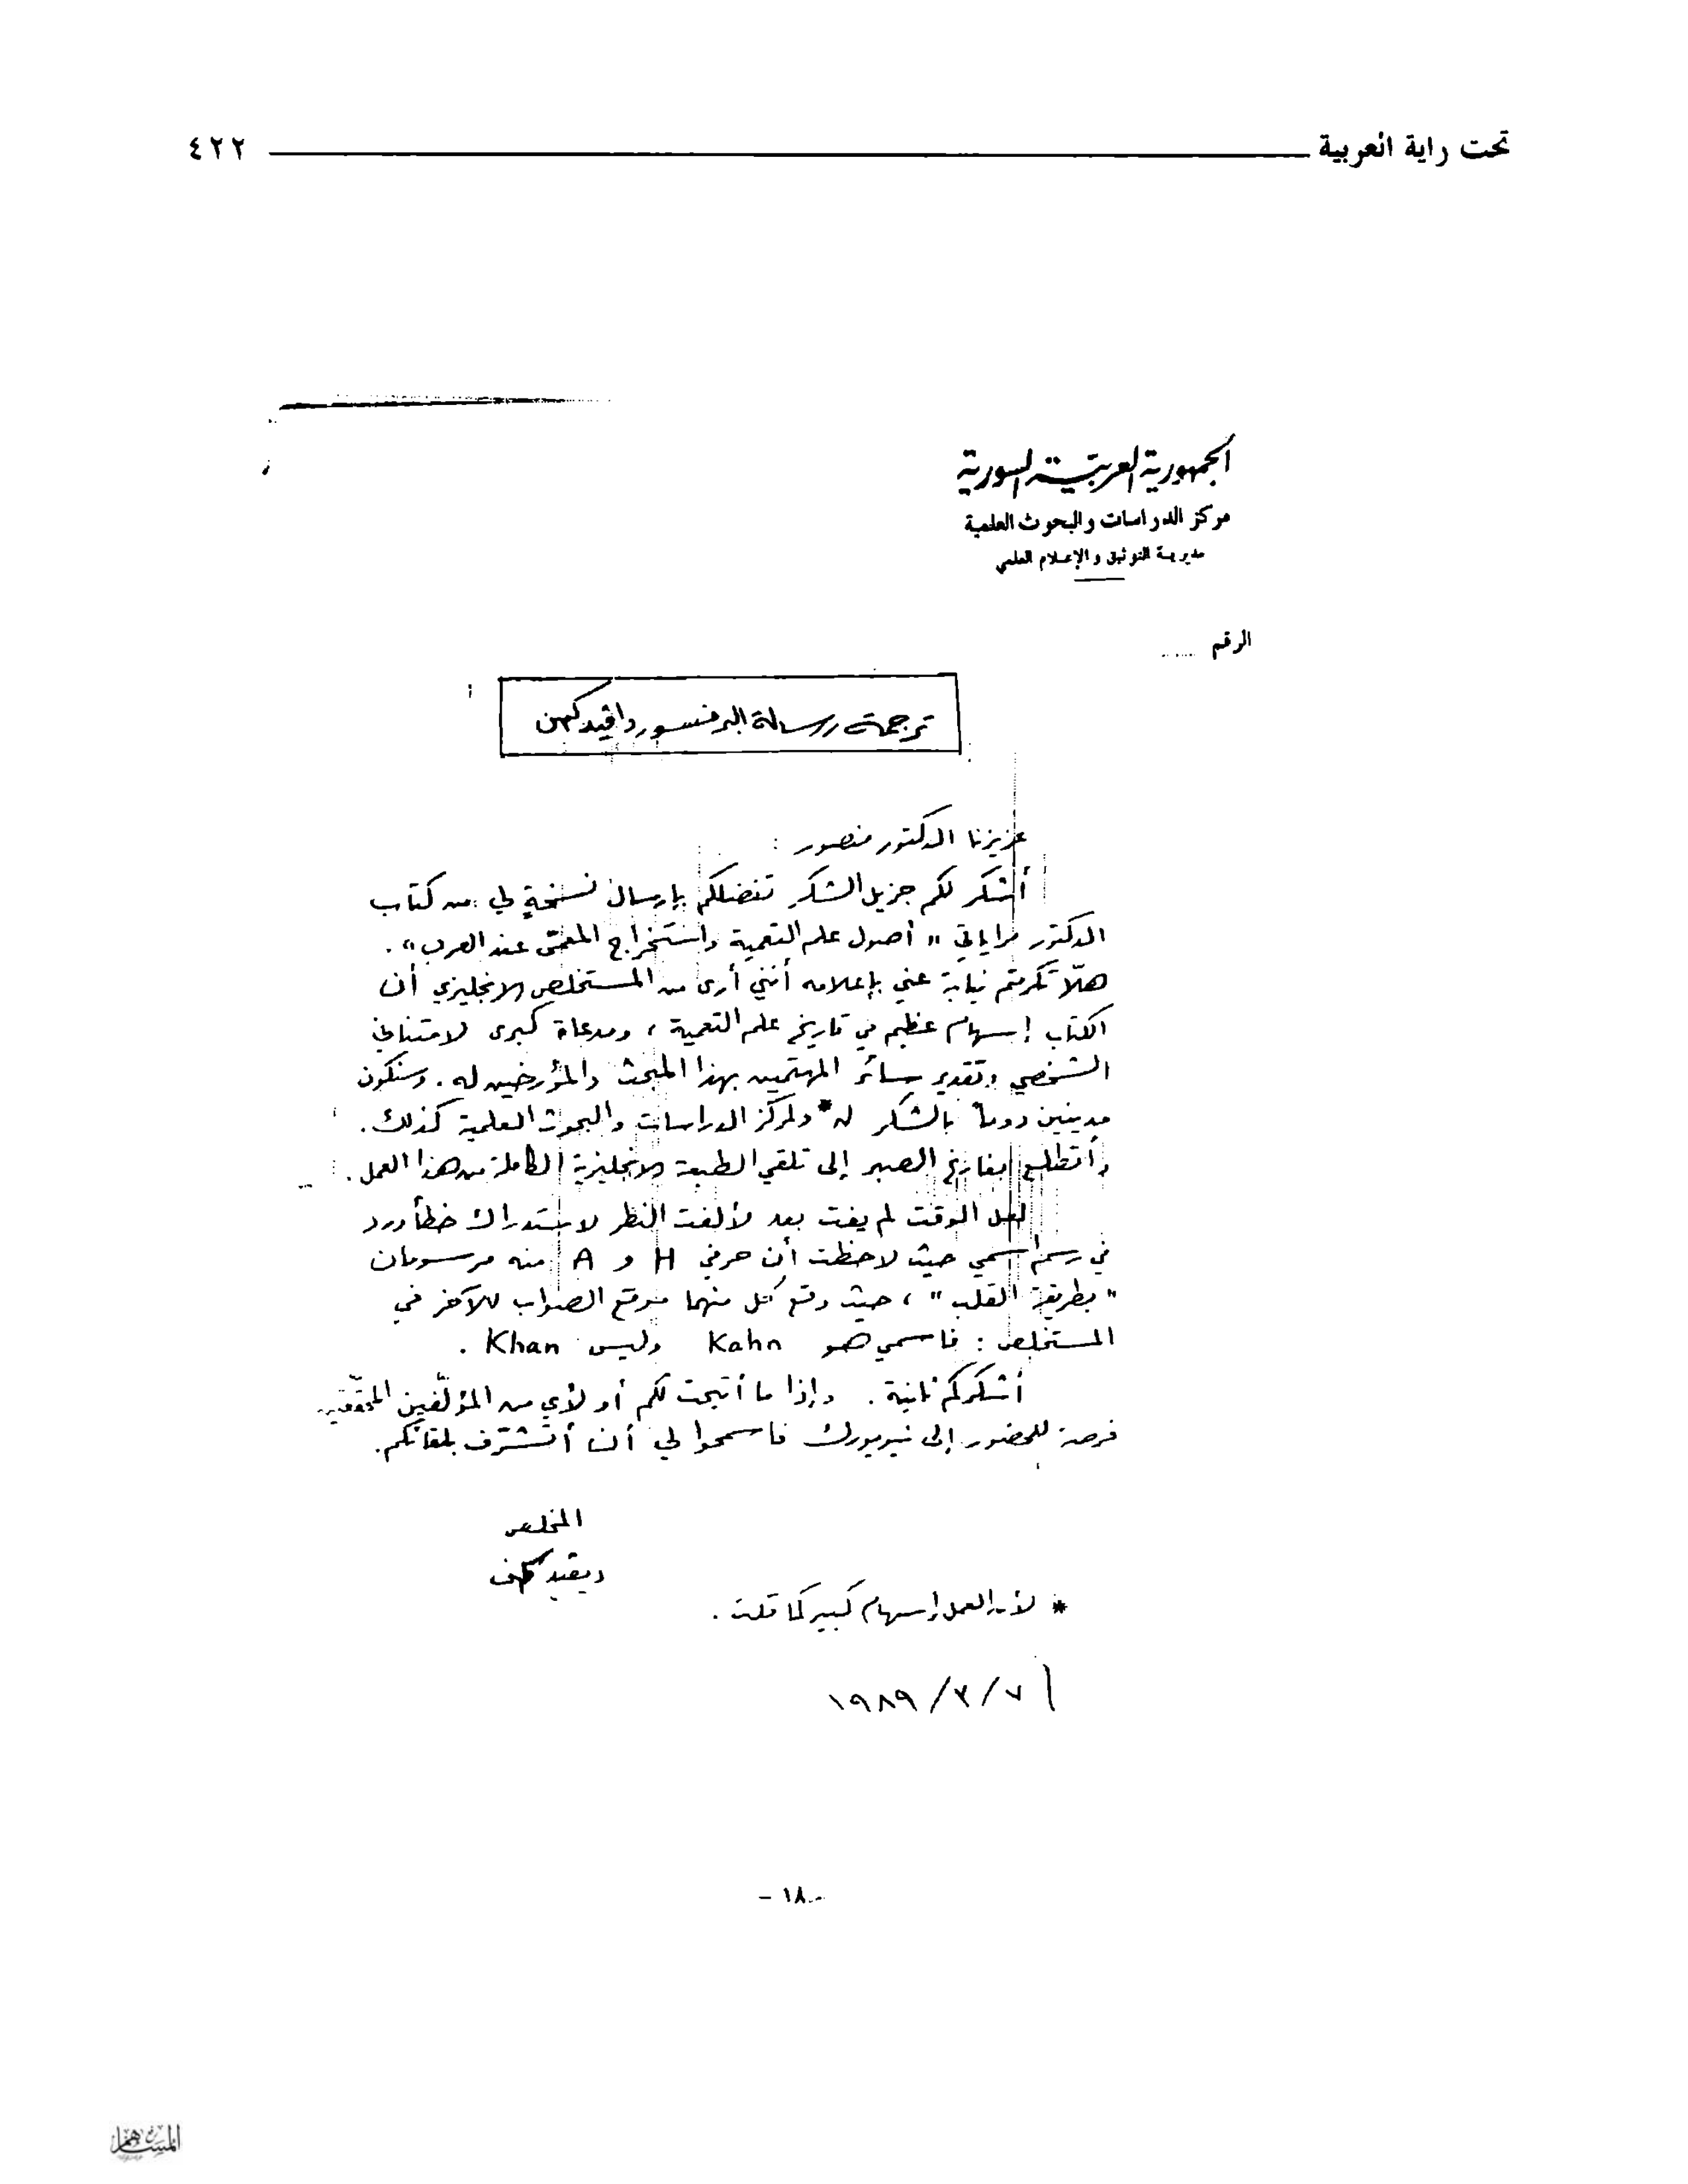 تحت راية العربية ٤٢٢
الجمهورية العربية السورية
مركز الدراسات والبحوث العلمية
مديرية التوثيق والإعلام العلمي
الرقم ......
ترجمة رسالة البرفسور داڤيد كهن
عزيزنا الدكتور منصور :
أشكر لكم جزيل الشكر تفضلكم بإرسال نسخةٍ لي من كتاب
الدكتور مراياتي " أصول علم التعمية واستخراج المعمّى عند العرب " .
هلّا تكرمتم نيابة عني بإعلامه أنني أرى من المستخلص الانجليزي أن
الكتاب إسهام عظيم في تاريخ علم التعمية ، ومدعاة كبرى لامتناني
الشخصي وتقدير سائر المهتمين بهذا المبحث والمؤرخين له . وسنكون
مدينين دوماً بالشكر له * ولمركز الدراسات والبحوث العلمية كذلك .
وأتطلع بفارغ الصبر إلى تلقي الطبعة الانجليزية الكاملة من هذا العمل .
لعل الوقت لم يفت بعد لألفت النظر لاستدراك خطأ ورد
في رسم اسمي حيث لاحظت أن حرفي H و A منه مرسومان
" بطريقة القلب " ، حيث وقع كل منهما موقع الصواب للآخر في
المستخلص : فاسمي هو Kahn وليس Khan .
أشكركم ثانية . وإذا ما أتيحت لكم أو لأي من المؤلّفين المحقّقين
فرصة للحضور إلى نيويورك فاسمحوا لي أن أتشرّف بلقائكم .
المخلص
ديڤيد كهن
* لأن العمل إسهام كبير كما قلت .
١٩٨٩/٣/٧
- ١٨ -